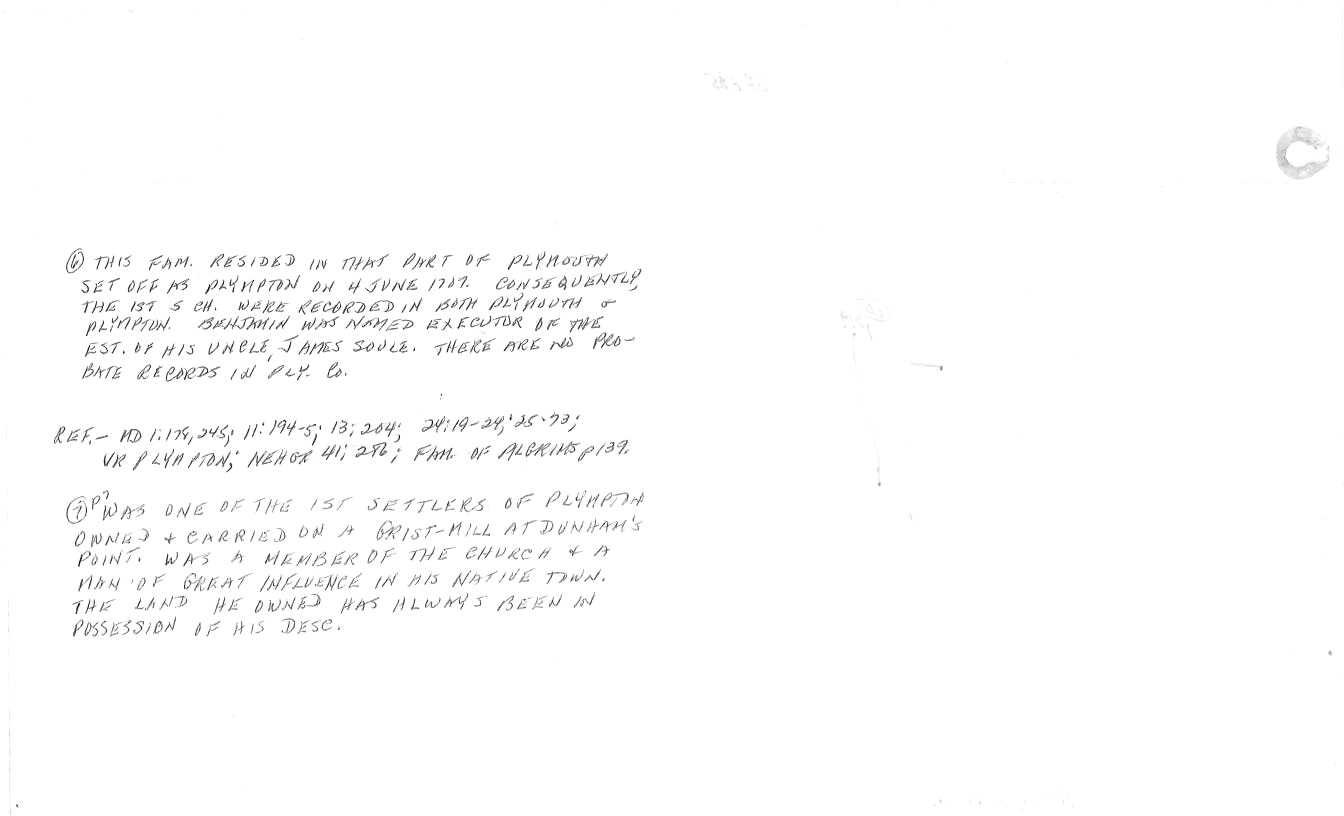 ⑥ THIS FAM. RESIDED IN THAT PART OF PLYMOUTH
SET OFF AS PLYMPTON ON 4 JUNE 1707. CONSEQUENTLY,
THE 1ST 5 CH. WERE RECORDED IN BOTH PLYMOUTH &
PLYMPTON. BENJAMIN WAS NAMED EXECUTOR OF THE
EST. OF HIS UNCLE, JAMES SOULE. THERE ARE NO PRO-
BATE RECORDS IN PLY. Co.
REF.- MD 1:178,245; 11:194-5; 13:204; 24:19-24; 25:73;
VR PLYMPTON; NEHGR 41; 286; FAM. OF PILGRIMS p139.
⑦ P? WAS ONE OF THE 1ST SETTLERS OF PLYMPTON
OWNED & CARRIED ON A GRIST-MILL AT DUNHAM'S
POINT. WAS A MEMBER OF THE CHURCH & A
MAN OF GREAT INFLUENCE IN HIS NATIVE TOWN.
THE LAND HE OWNED HAS ALWAYS BEEN IN
POSSESSION OF HIS DESC.